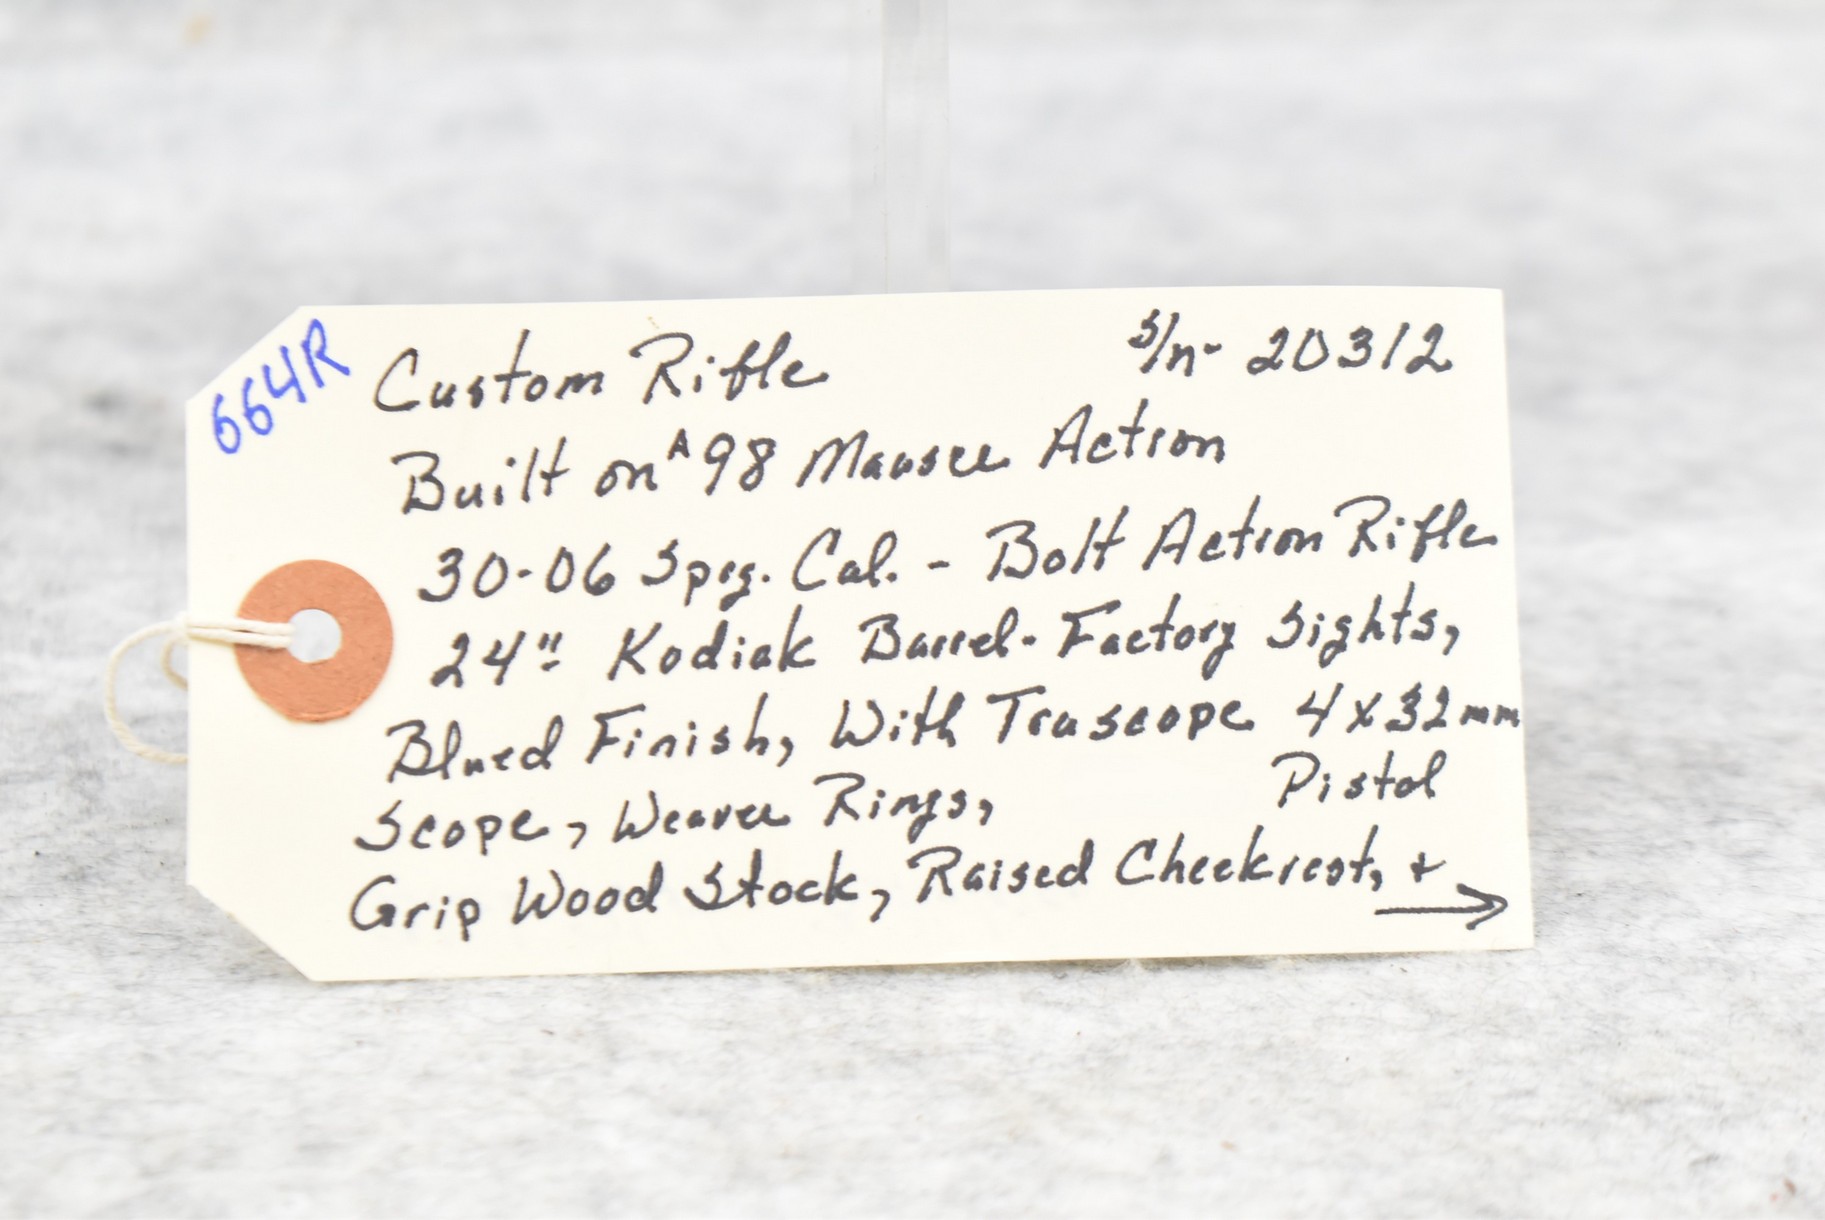 664R
Custom Rifle s/n- 20312
Built on A 98 Mauser Action
30-06 Sprg. Cal. - Bolt Action Rifle
24" Kodiak Barrel - Factory Sights,
Blued Finish, With Trascope 4x32mm
Scope, Weaver Rings, Pistol
Grip Wood Stock, Raised Cheekrest, +
→